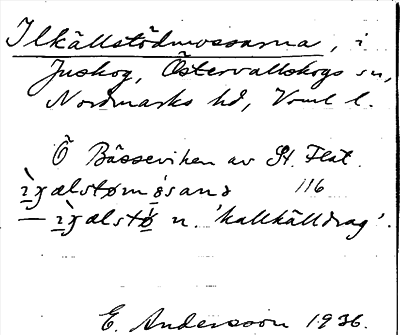 Ilkällstödmossarna, i
Juskog, Östervallskogs sn,
Nordmarks hd, Vrml l.
Ö Bässeviken av St. Flat.
116
— n. 'kallkälldrag'.
E. Andersson 1936.